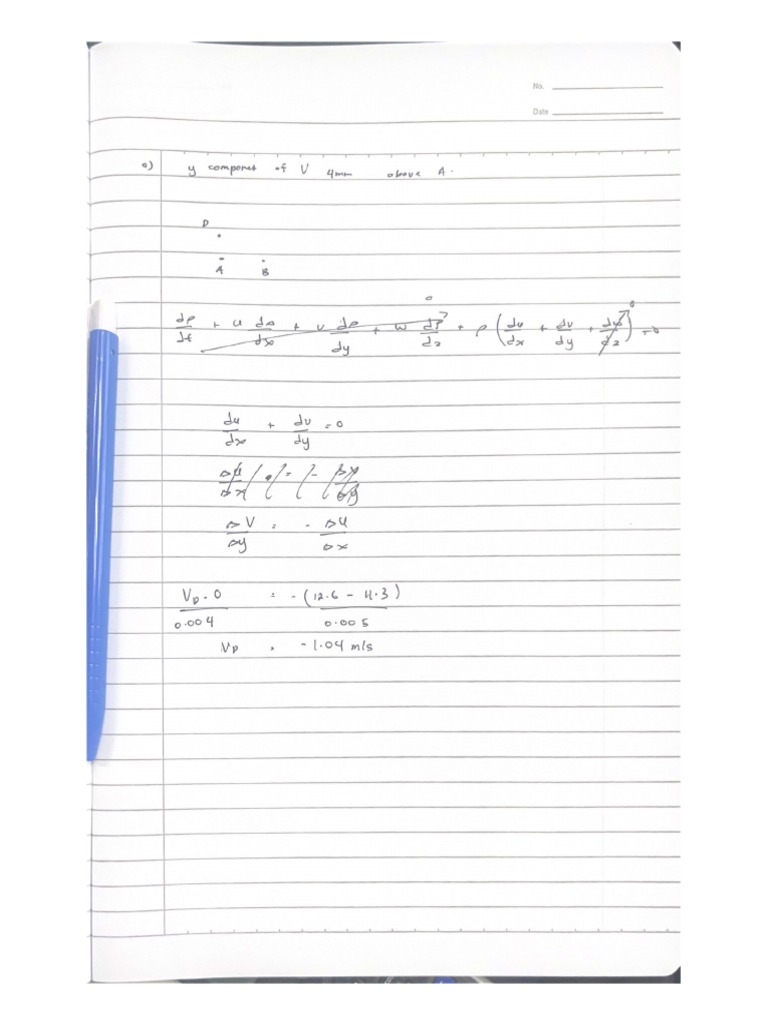 No.
Date
a) y componet of V 4mm above A.
D
A B
0 0
dρ/dt + u dρ/dx + v dρ/dy + w dρ/dz + ρ (du/dx + dv/dy + dw/dz) = 0
du/dx + dv/dy = 0
Δu/Δx = - Δv/Δy
ΔV/Δy = - Δu/Δx
V_D - 0 / 0.004 = - (12.6 - 11.3) / 0.005
V_D = -1.04 m/s